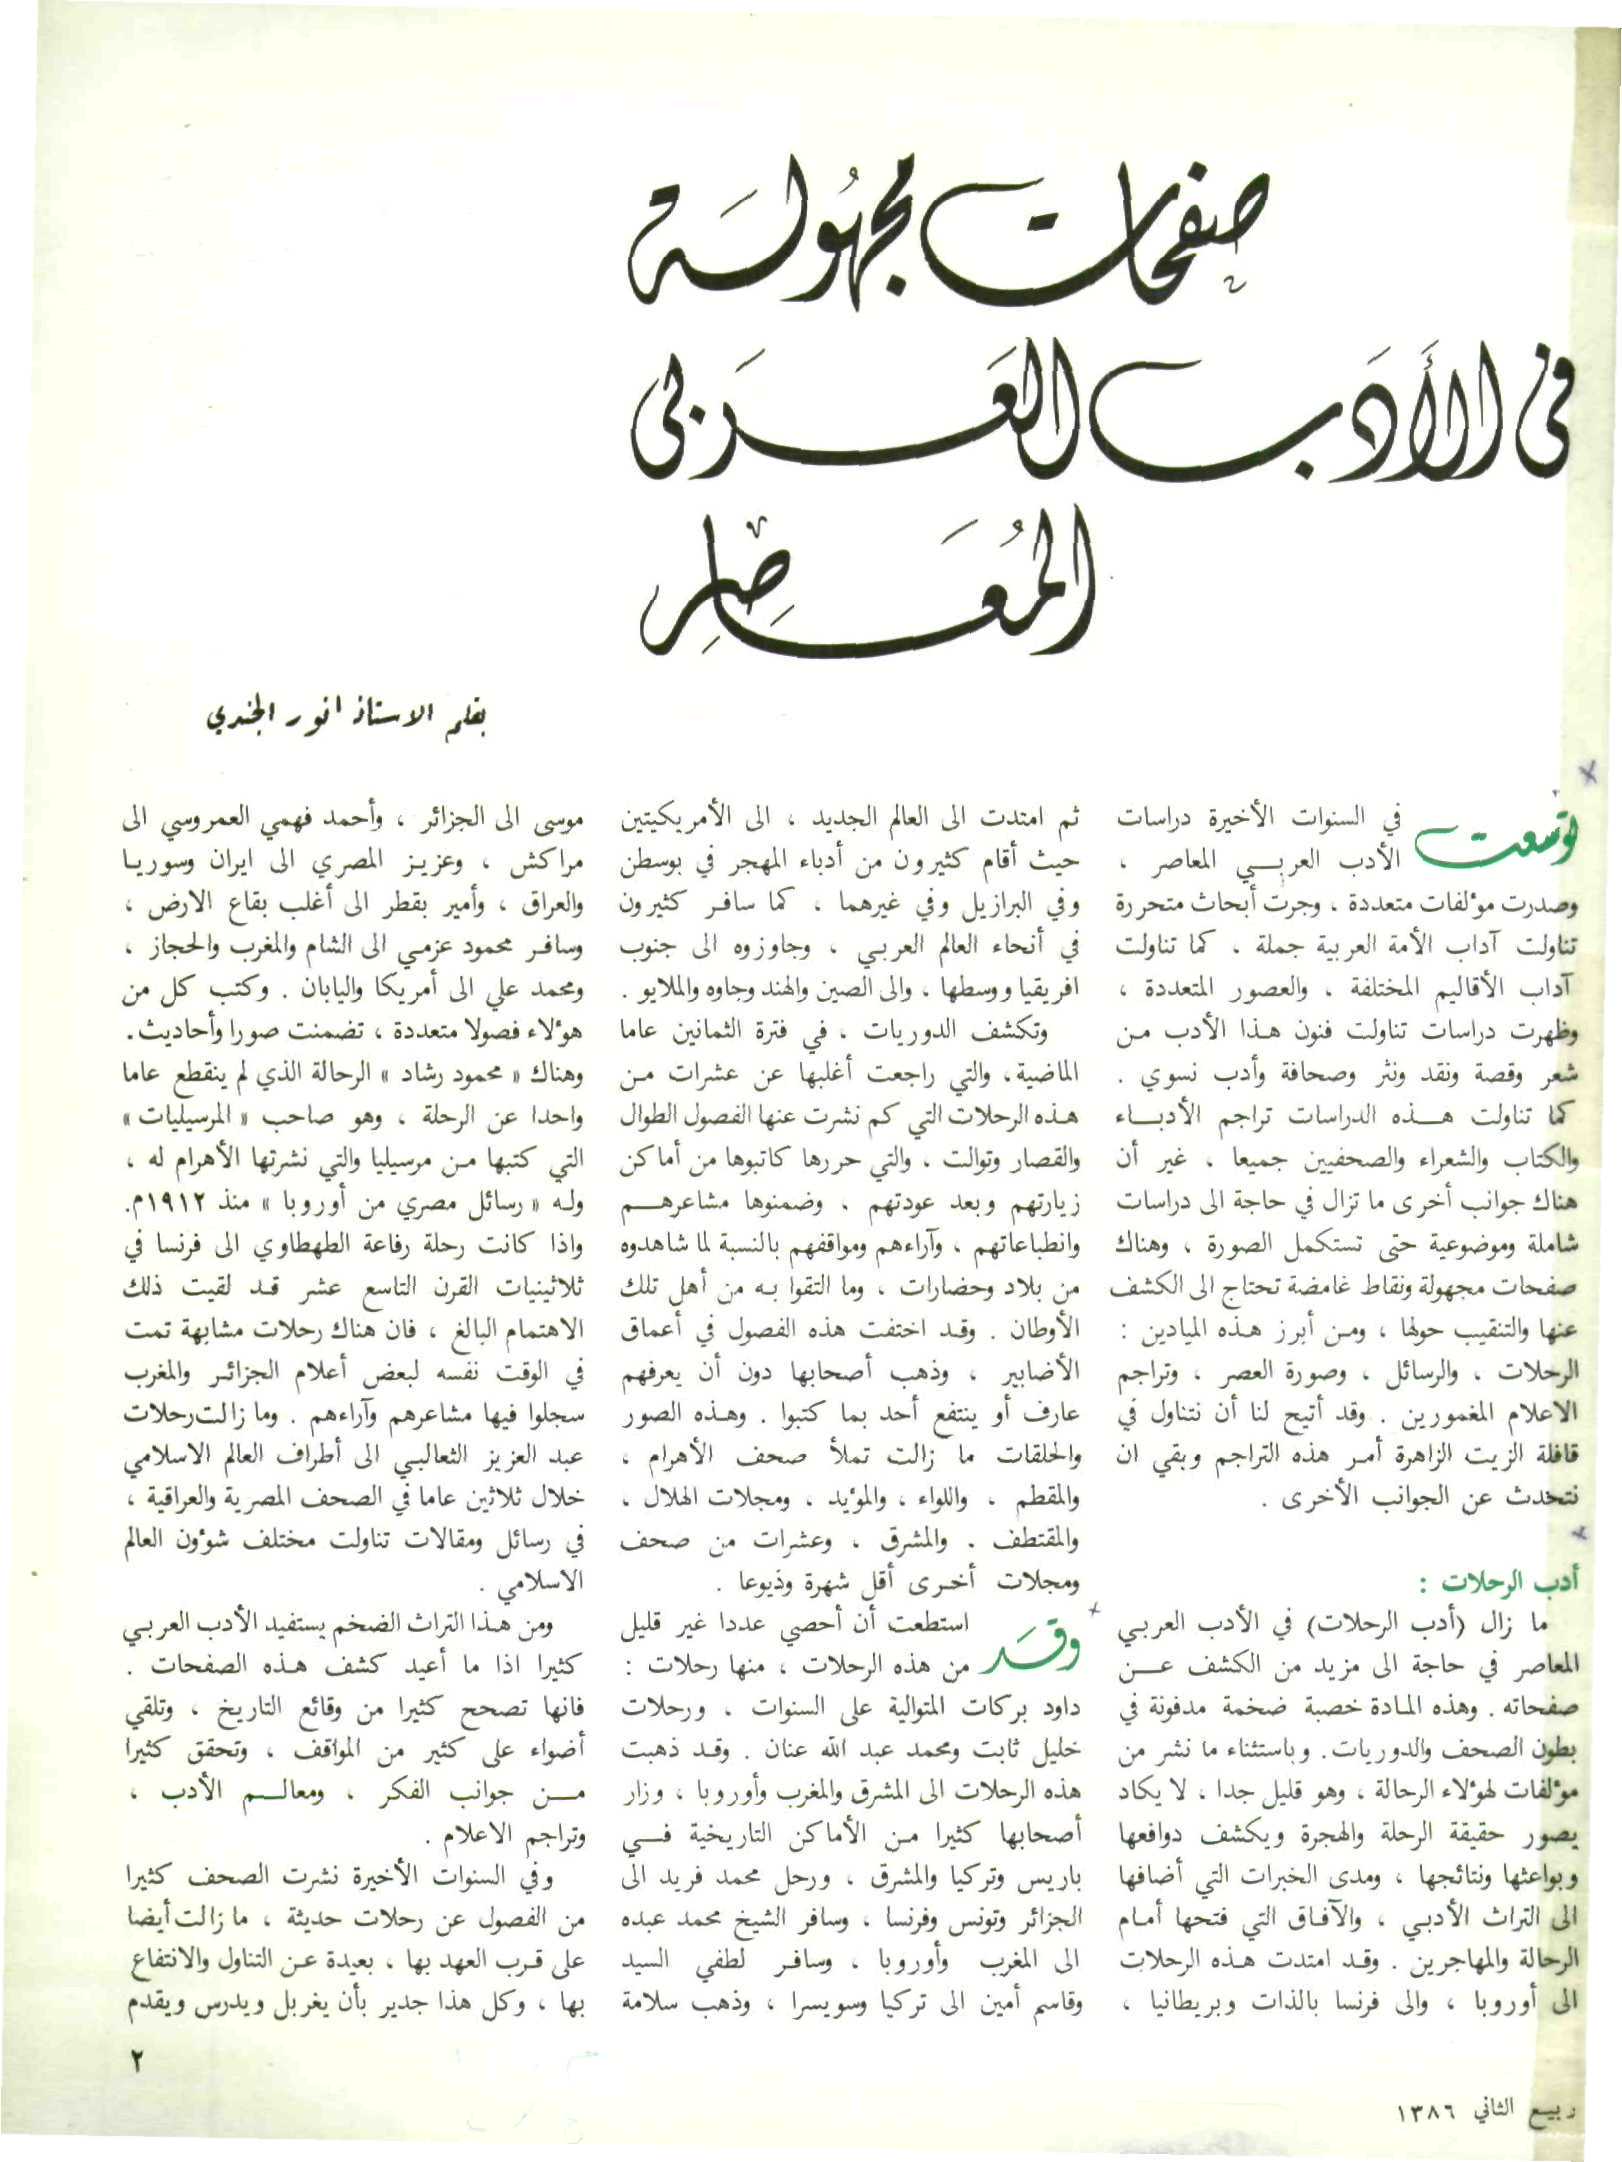 صفحات مجهولة
في الأدب العربي
المعاصر
بقلم الاستاذ انور الجندي
توسعت في السنوات الأخيرة دراسات
الأدب العربي المعاصر ،
وصدرت مؤلفات متعددة ، وجرت أبحاث متحررة
تناولت آداب الأمة العربية جملة ، كما تناولت
آداب الأقاليم المختلفة ، والعصور المتعددة ،
وظهرت دراسات تناولت فنون هذا الأدب من
شعر وقصة ونقد ونثر وصحافة وأدب نسوي .
كما تناولت هذه الدراسات تراجم الأدباء
والكتاب والشعراء والصحفيين جميعا ، غير أن
هناك جوانب أخرى ما تزال في حاجة الى دراسات
شاملة وموضوعية حتى تستكمل الصورة ، وهناك
صفحات مجهولة ونقاط غامضة تحتاج الى الكشف
عنها والتنقيب حولها ، ومن أبرز هذه الميادين :
الرحلات ، والرسائل ، وصورة العصر ، وتراجم
الاعلام المغمورين . وقد أتيح لنا أن نتناول في
قافلة الزيت الزاهرة أمر هذه التراجم وبقي ان
نتحدث عن الجوانب الأخرى .
أدب الرحلات :
ما زال (أدب الرحلات) في الأدب العربي
المعاصر في حاجة الى مزيد من الكشف عن
صفحاته . وهذه المادة خصبة ضخمة مدفونة في
بطون الصحف والدوريات . وباستثناء ما نشر من
مؤلفات لهؤلاء الرحالة ، وهو قليل جدا ، لا يكاد
يصور حقيقة الرحلة والهجرة ويكشف دوافعها
وبواعثها ونتائجها ، ومدى الخبرات التي أضافها
الى التراث الأدبي ، والآفاق التي فتحها أمام
الرحالة والمهاجرين . وقد امتدت هذه الرحلات
الى أوروبا ، والى فرنسا بالذات وبريطانيا ،
ثم امتدت الى العالم الجديد ، الى الأمريكيتين
حيث أقام كثيرون من أدباء المهجر في بوسطن
وفي البرازيل وفي غيرهما ، كما سافر كثيرون
في أنحاء العالم العربي ، وجاوزوه الى جنوب
افريقيا ووسطها ، والى الصين والهند وجاوه والملايو .
وتكشف الدوريات ، في فترة الثمانين عاما
الماضية، والتي راجعت أغلبها عن عشرات من
هذه الرحلات التي كم نشرت عنها الفصول الطوال
والقصار وتوالت ، والتي حررها كاتبوها من أماكن
زيارتهم وبعد عودتهم ، وضمنوها مشاعرهم
وانطباعاتهم ، وآراءهم ومواقفهم بالنسبة لما شاهدوه
من بلاد وحضارات ، وما التقوا به من أهل تلك
الأوطان . وقد اختفت هذه الفصول في أعماق
الأضابير ، وذهب أصحابها دون أن يعرفهم
عارف أو ينتفع أحد بما كتبوا . وهذه الصور
والحلقات ما زالت تملأ صحف الأهرام ،
والمقطم ، واللواء ، والمؤيد ، ومجلات الهلال ،
والمقتطف . والمشرق ، وعشرات من صحف
ومجلات أخرى أقل شهرة وذيوعا .
وقد استطعت أن أحصي عددا غير قليل
من هذه الرحلات ، منها رحلات :
داود بركات المتوالية على السنوات ، ورحلات
خليل ثابت ومحمد عبد الله عنان . وقد ذهبت
هذه الرحلات الى المشرق والمغرب وأوروبا ، وزار
أصحابها كثيرا من الأماكن التاريخية في
باريس وتركيا والمشرق ، ورحل محمد فريد الى
الجزائر وتونس وفرنسا ، وسافر الشيخ محمد عبده
الى المغرب وأوروبا ، وسافر لطفي السيد
وقاسم أمين الى تركيا وسويسرا ، وذهب سلامة
موسى الى الجزائر ، وأحمد فهمي العمروسي الى
مراكش ، وعزيز المصري الى ايران وسوريا
والعراق ، وأمير بقطر الى أغلب بقاع الارض ،
وسافر محمود عزمي الى الشام والمغرب والحجاز ،
ومحمد علي الى أمريكا واليابان . وكتب كل من
هؤلاء فصولا متعددة ، تضمنت صورا وأحاديث.
وهناك « محمود رشاد » الرحالة الذي لم ينقطع عاما
واحدا عن الرحلة ، وهو صاحب « المرسيليات »
التي كتبها من مرسيليا والتي نشرتها الأهرام له ،
وله « رسائل مصري من أوروبا » منذ ١٩١٢م.
واذا كانت رحلة رفاعة الطهطاوي الى فرنسا في
ثلاثينيات القرن التاسع عشر قد لقيت ذلك
الاهتمام البالغ ، فان هناك رحلات مشابهة تمت
في الوقت نفسه لبعض أعلام الجزائر والمغرب
سجلوا فيها مشاعرهم وآراءهم . وما زالت رحلات
عبد العزيز الثعالبي الى أطراف العالم الاسلامي
خلال ثلاثين عاما في الصحف المصرية والعراقية ،
في رسائل ومقالات تناولت مختلف شؤون العالم
الاسلامي .
ومن هذا التراث الضخم يستفيد الأدب العربي
كثيرا اذا ما أعيد كشف هذه الصفحات .
فانها تصحح كثيرا من وقائع التاريخ ، وتلقي
أضواء على كثير من المواقف ، وتحقق كثيرا
من جوانب الفكر ، ومعالم الأدب ،
وتراجم الاعلام .
وفي السنوات الأخيرة نشرت الصحف كثيرا
من الفصول عن رحلات حديثة ، ما زالت أيضا
على قرب العهد بها ، بعيدة عن التناول والانتفاع
بها ، وكل هذا جدير بأن يغربل ويدرس ويقدم
٢
ربيع الثاني ١٣٨٦